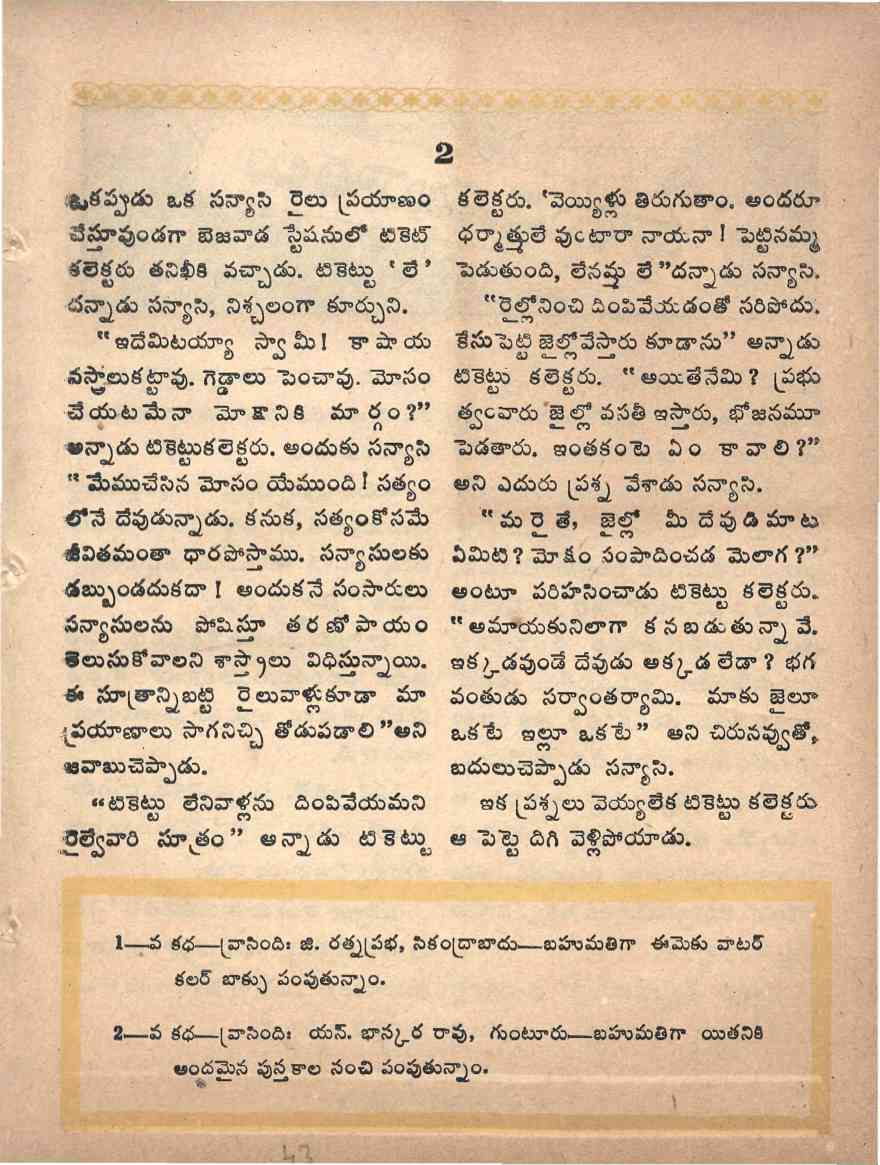 2
ఒకప్పుడు ఒక సన్యాసి రైలు ప్రయాణం
చేస్తూవుండగా బెజవాడ స్టేషనులో టికెట్
కలెక్టరు తనిఖీకి వచ్చాడు. టికెట్టు ‘లే’
దన్నాడు సన్యాసి, నిశ్చలంగా కూర్చుని.
“ఇదేమిటయ్యా స్వామీ! కాషాయ
వస్త్రాలుకట్టావు. గెడ్డాలు పెంచావు. మోసం
చేయటమేనా మోక్షానికి మార్గం?”
అన్నాడు టికెట్టుకలెక్టరు. అందుకు సన్యాసి
“మేముచేసిన మోసం యేముంది! సత్యం
లోనే దేవుడున్నాడు. కనుక, సత్యంకోసమే
జీవితమంతా ధారపోస్తాము. సన్యాసులకు
డబ్బుండదుకదా! అందుకనే సంసారులు
సన్యాసులను పోషిస్తూ తరణోపాయం
తెలుసుకోవాలని శాస్త్రాలు విధిస్తున్నాయి.
ఈ సూత్రాన్నిబట్టి రైలువాళ్లుకూడా మా
ప్రయాణాలు సాగనిచ్చి తోడుపడాలి”అని
జవాబుచెప్పాడు.
“టికెట్టు లేనివాళ్లను దింపివేయమని
రైల్వేవారి సూత్రం” అన్నాడు టికెట్టు
కలెక్టరు. ‘వెయ్యిళ్లు తిరుగుతాం. అందరూ
ధర్మాత్ములే వుంటారా నాయనా! పెట్టినమ్మ
పెడుతుంది, లేనమ్మ లే”దన్నాడు సన్యాసి.
“రైల్లోనించి దింపివేయడంతో సరిపోదు.
కేసుపెట్టి జైల్లోవేస్తారు కూడాను” అన్నాడు
టికెట్టు కలెక్టరు. “అయితేనేమి? ప్రభు
త్వంవారు జైల్లో వసతీ ఇస్తారు, భోజనమూ
పెడతారు. ఇంతకంటె ఏం కావాలి?”
అని ఎదురు ప్రశ్న వేశాడు సన్యాసి.
“మరైతే, జైల్లో మీ దేవుడిమాట
ఏమిటి? మోక్షం సంపాదించడ మెలాగ?”
అంటూ పరిహసించాడు టికెట్టు కలెక్టరు.
“అమాయకునిలాగా కనబడుతున్నావే.
ఇక్కడవుండే దేవుడు అక్కడ లేడా? భగ
వంతుడు సర్వాంతర్యామి. మాకు జైలూ
ఒకటే ఇల్లూ ఒకటే” అని చిరునవ్వుతో,
బదులుచెప్పాడు సన్యాసి.
ఇక ప్రశ్నలు వెయ్యలేక టికెట్టు కలెక్టరు
ఆ పెట్టె దిగి వెళ్లిపోయాడు.
1—వ కధ—వ్రాసింది: జి. రత్నప్రభ, సికింద్రాబాదు—బహుమతిగా ఈమెకు వాటర్
కలర్ బాక్సు పంపుతున్నాం.
2—వ కధ—వ్రాసింది: యన్. భాస్కర రావు, గుంటూరు—బహుమతిగా యితనికి
అందమైన పుస్తకాల సంచి పంపుతున్నాం.
43